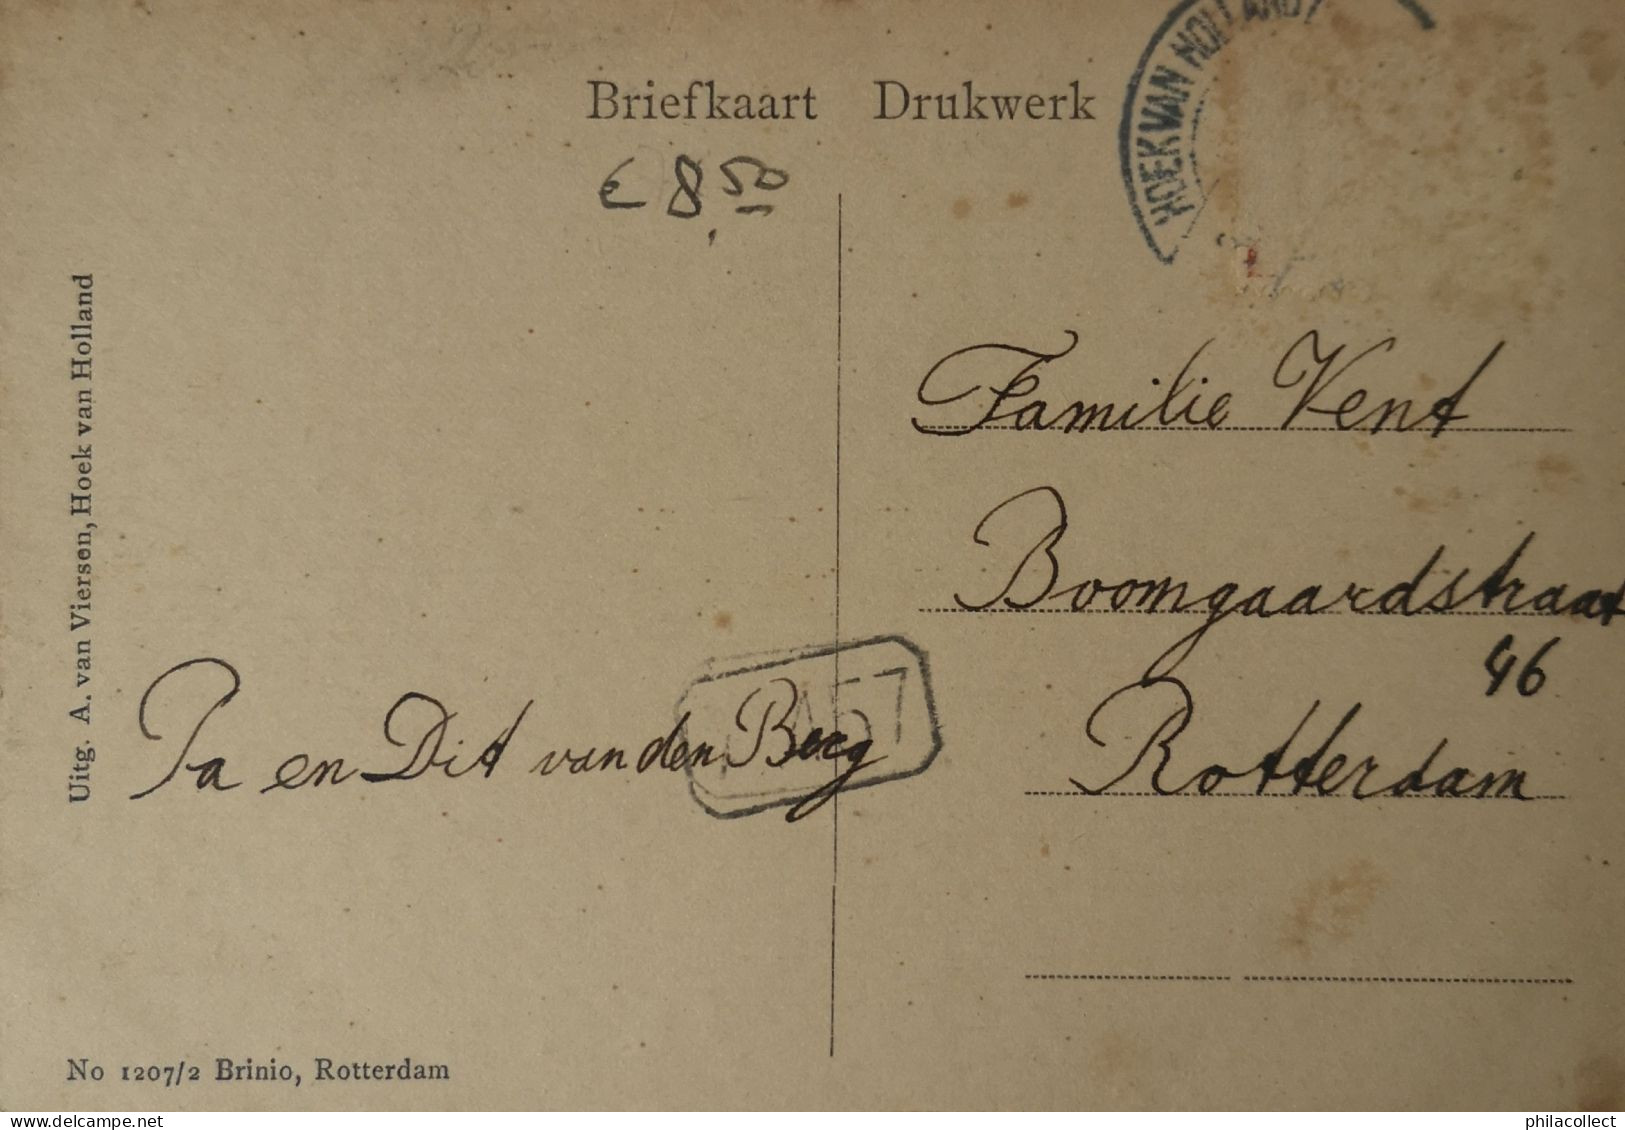 HOEK VAN HOLLAND
Briefkaart Drukwerk
€ 8,50
Uitg. A. van Viersen, Hoek van Holland
Familie Vent
Boomgaardstraat
46
Rotterdam
Pa en Dit van den Berg
No 1207/2 Brinio, Rotterdam
philacollect